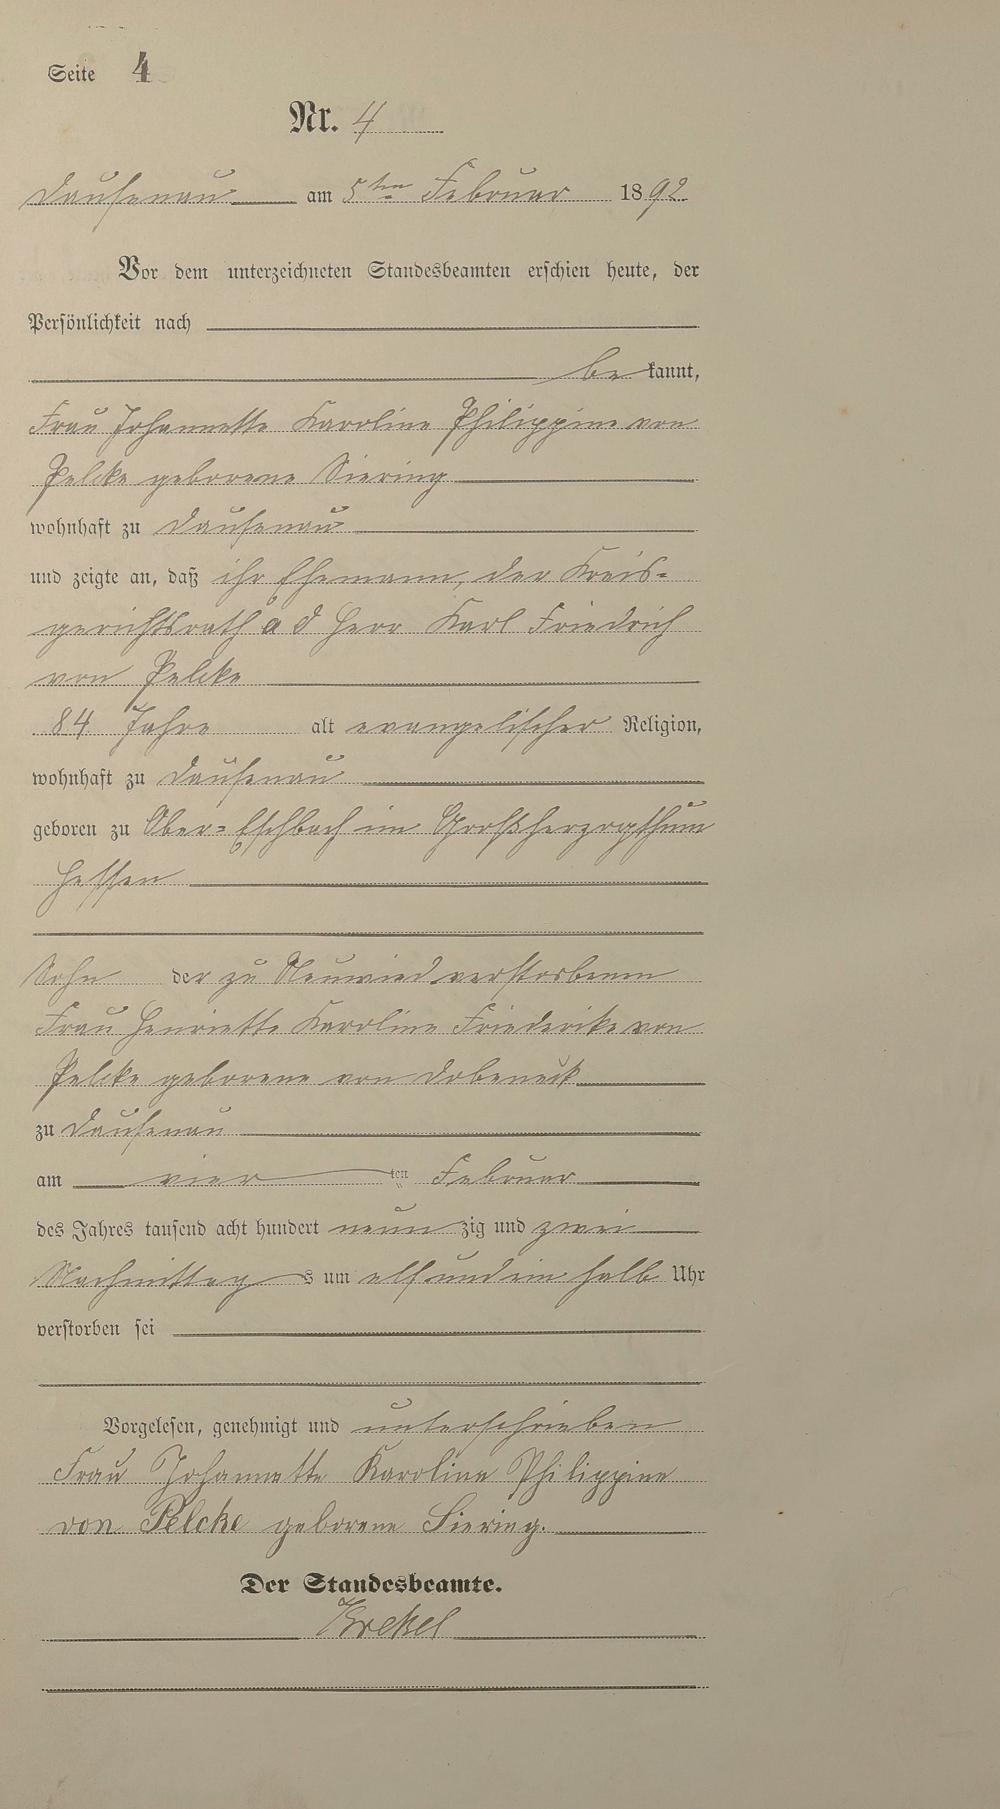 Seite 4
Nr. 4
Dausenau am 5ten Februar 1892
Vor dem unterzeichneten Standesbeamten erschien heute, der
Persönlichkeit nach
bekannt,
Frau Johannette Karoline Philippine von
Pelcke geborene Siering
wohnhaft zu Dausenau
und zeigte an, daß ihr Ehemann, der Kreis-
gerichtsrath a d Herr Karl Friedrich
von Pelcke
84 Jahre alt evangelischer Religion,
wohnhaft zu Dausenau
geboren zu Ober-Eschbach im Großherzogthum
Hessen
Sohn der zu Neuwied verstorbenen
Frau Henriette Karoline Friederike von
Pelcke geborene von Dobeneck
zu Dausenau
am vier ten Februar
des Jahres tausend acht hundert neunzig und zwei
Nachmittags um elf und ein halb Uhr
verstorben sei
Vorgelesen, genehmigt und unterschrieben
Frau Johannette Karoline Philippine
von Pelcke geborene Siering.
Der Standesbeamte.
Krekel